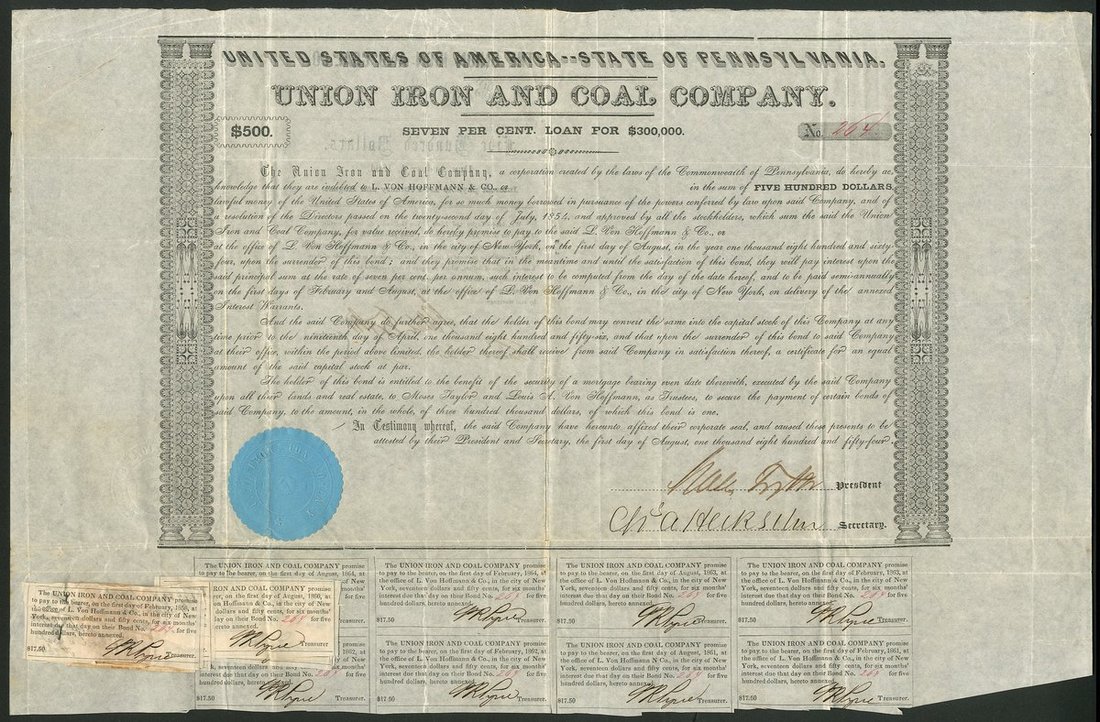 UNITED STATES OF AMERICA--STATE OF PENNSYLVANIA.
UNION IRON AND COAL COMPANY.
$500. SEVEN PER CENT. LOAN FOR $300,000. No. 264
The Union Iron and Coal Company, a corporation created by the laws of the Commonwealth of Pennsylvania, do hereby ac-
knowledge that they are indebted to L. VON HOFFMANN & CO., or in the sum of FIVE HUNDRED DOLLARS,
lawful money of the United States of America, for so much money borrowed in pursuance of the powers conferred by law upon said Company, and of
a resolution of the Directors passed on the twenty-second day of July, 1854, and approved by all the stockholders, which sum the said the Union
Iron and Coal Company, for value received, do hereby promise to pay to the said L. Von Hoffmann & Co., or
at the office of L. Von Hoffmann & Co., in the city of New York, on the first day of August, in the year one thousand eight hundred and sixty-
four, upon the surrender of this bond; and they promise that in the meantime and until the satisfaction of this bond, they will pay interest upon the
said principal sum at the rate of seven per cent. per annum, such interest to be computed from the day of the date hereof, and to be paid semi-annually
on the first days of February and August, at the office of L. Von Hoffmann & Co., in the city of New York, on delivery of the annexed
Interest Warrants.
And the said Company do further agree, that the holder of this bond may convert the same into the capital stock of this Company at any
time prior to the nineteenth day of April, one thousand eight hundred and fifty-six, and that upon the surrender of this bond to said Company
at their office, within the period above limited, the holder thereof shall receive from said Company in satisfaction thereof, a certificate for an equal
amount of the said capital stock at par.
The holder of this bond is entitled to the benefit of the security of a mortgage bearing even date therewith, executed by the said Company
upon all their lands and real estate, to Moses Taylor and Louis A. Von Hoffmann, as Trustees, to secure the payment of certain bonds of
said Company, to the amount, in the whole, of three hundred thousand dollars, of which this bond is one.
In Testimony whereof, the said Company have hereunto affixed their corporate seal, and caused these presents to be
attested by their President and Secretary, the first day of August, one thousand eight hundred and fifty-four.
President
Chs A Heckscher Secretary.
The UNION IRON AND COAL COMPANY promise
to pay to the bearer, on the first day of August, 1864, at
the office of L. Von Hoffmann & Co., in the city of New
The UNION IRON AND COAL COMPANY promise
to pay to the bearer, on the first day of February, 1864, at
the office of L. Von Hoffmann & Co., in the city of New
York, seventeen dollars and fifty cents, for six months'
interest due that day on their Bond No. 264 for five
hundred dollars, hereto annexed.
$17.50 Treasurer.
The UNION IRON AND COAL COMPANY promise
to pay to the bearer, on the first day of August, 1863, at
the office of L. Von Hoffmann & Co., in the city of New
York, seventeen dollars and fifty cents, for six months'
interest due that day on their Bond No. 264 for five
hundred dollars, hereto annexed.
$17.50 Treasurer.
The UNION IRON AND COAL COMPANY promise
to pay to the bearer, on the first day of February, 1863, at
the office of L. Von Hoffmann & Co., in the city of New
York, seventeen dollars and fifty cents, for six months'
interest due that day on their Bond No. 264 for five
hundred dollars, hereto annexed.
$17.50 Treasurer.
The UNION IRON AND COAL COMPANY promise
to pay to the bearer, on the first day of February, 1860, at
the office of L. Von Hoffmann & Co., in the city of New
York, seventeen dollars and fifty cents, for six months'
interest due that day on their Bond No. 264 for five
hundred dollars, hereto annexed.
$17.50 Treasurer.
IRON AND COAL COMPANY promise
er, on the first day of August, 1860, at
Von Hoffmann & Co., in the city of New
dollars and fifty cents, for six months'
day on their Bond No. 264 for five
hereto annexed.
Treasurer.
York, seventeen dollars and fifty cents, for six months'
interest due that day on their Bond No. 264 for five
hundred dollars, hereto annexed.
$17.50 Treasurer.
The UNION IRON AND COAL COMPANY promise
to pay to the bearer, on the first day of February, 1862, at
the office of L. Von Hoffmann & Co., in the city of New
York, seventeen dollars and fifty cents, for six months'
interest due that day on their Bond No. 264 for five
hundred dollars, hereto annexed.
$17.50 Treasurer.
The UNION IRON AND COAL COMPANY promise
to pay to the bearer, on the first day of August, 1861, at
the office of L. Von Hoffmann N Co., in the city of New
York, seventeen dollars and fifty cents, for six months'
interest due that day on their Bond No. 264 for five
hundred dollars, hereto annexed.
$17.50 Treasurer.
The UNION IRON AND COAL COMPANY promise
to pay to the bearer, on the first day of February, 1861, at
the office of L. Von Hoffmann & Co., in the city of New
York, seventeen dollars and fifty cents, for six months'
interest due that day on their Bond No. 264 for five
hundred dollars, hereto annexed.
$17.50 Treasurer.